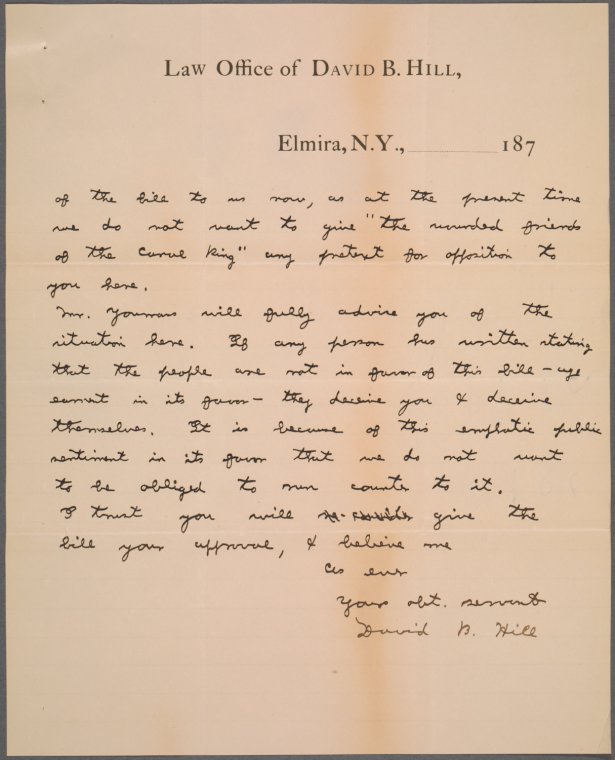 Law Office of DAVID B. HILL,
Elmira, N.Y., 187
of the bill to us now, as at the present time
we do not want to give "the wounded friends
of the Canal King" any pretext for opposition to
you here.
Mr. Youmans will fully advise you of the
situation here. If any person has written stating
that the people are not in favor of this bill - aye
earnest in its favor - they deceive you & deceive
themselves. It is because of this emphatic public
sentiment in its favor that we do not want
to be obliged to run counter to it.
I trust you will give the
bill your approval, & believe me
as ever
Yours obt. servant
David B. Hill